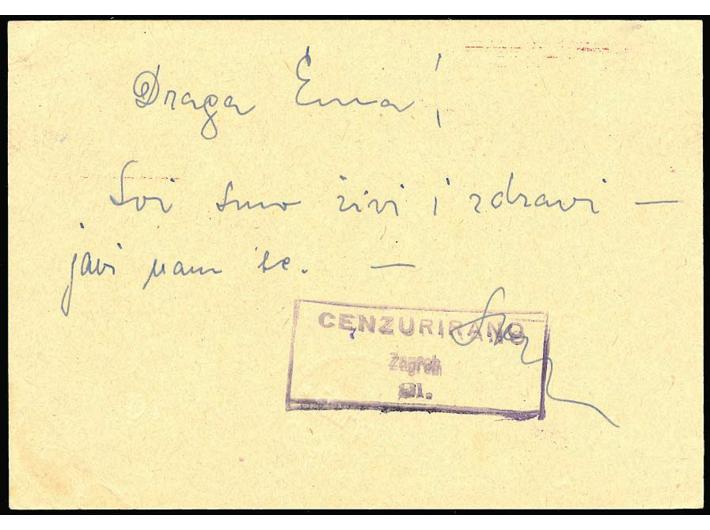 Draga Ema!
Svi smo živi i zdravi —
javi nam se. —
CENZURIRANO
Zagreb